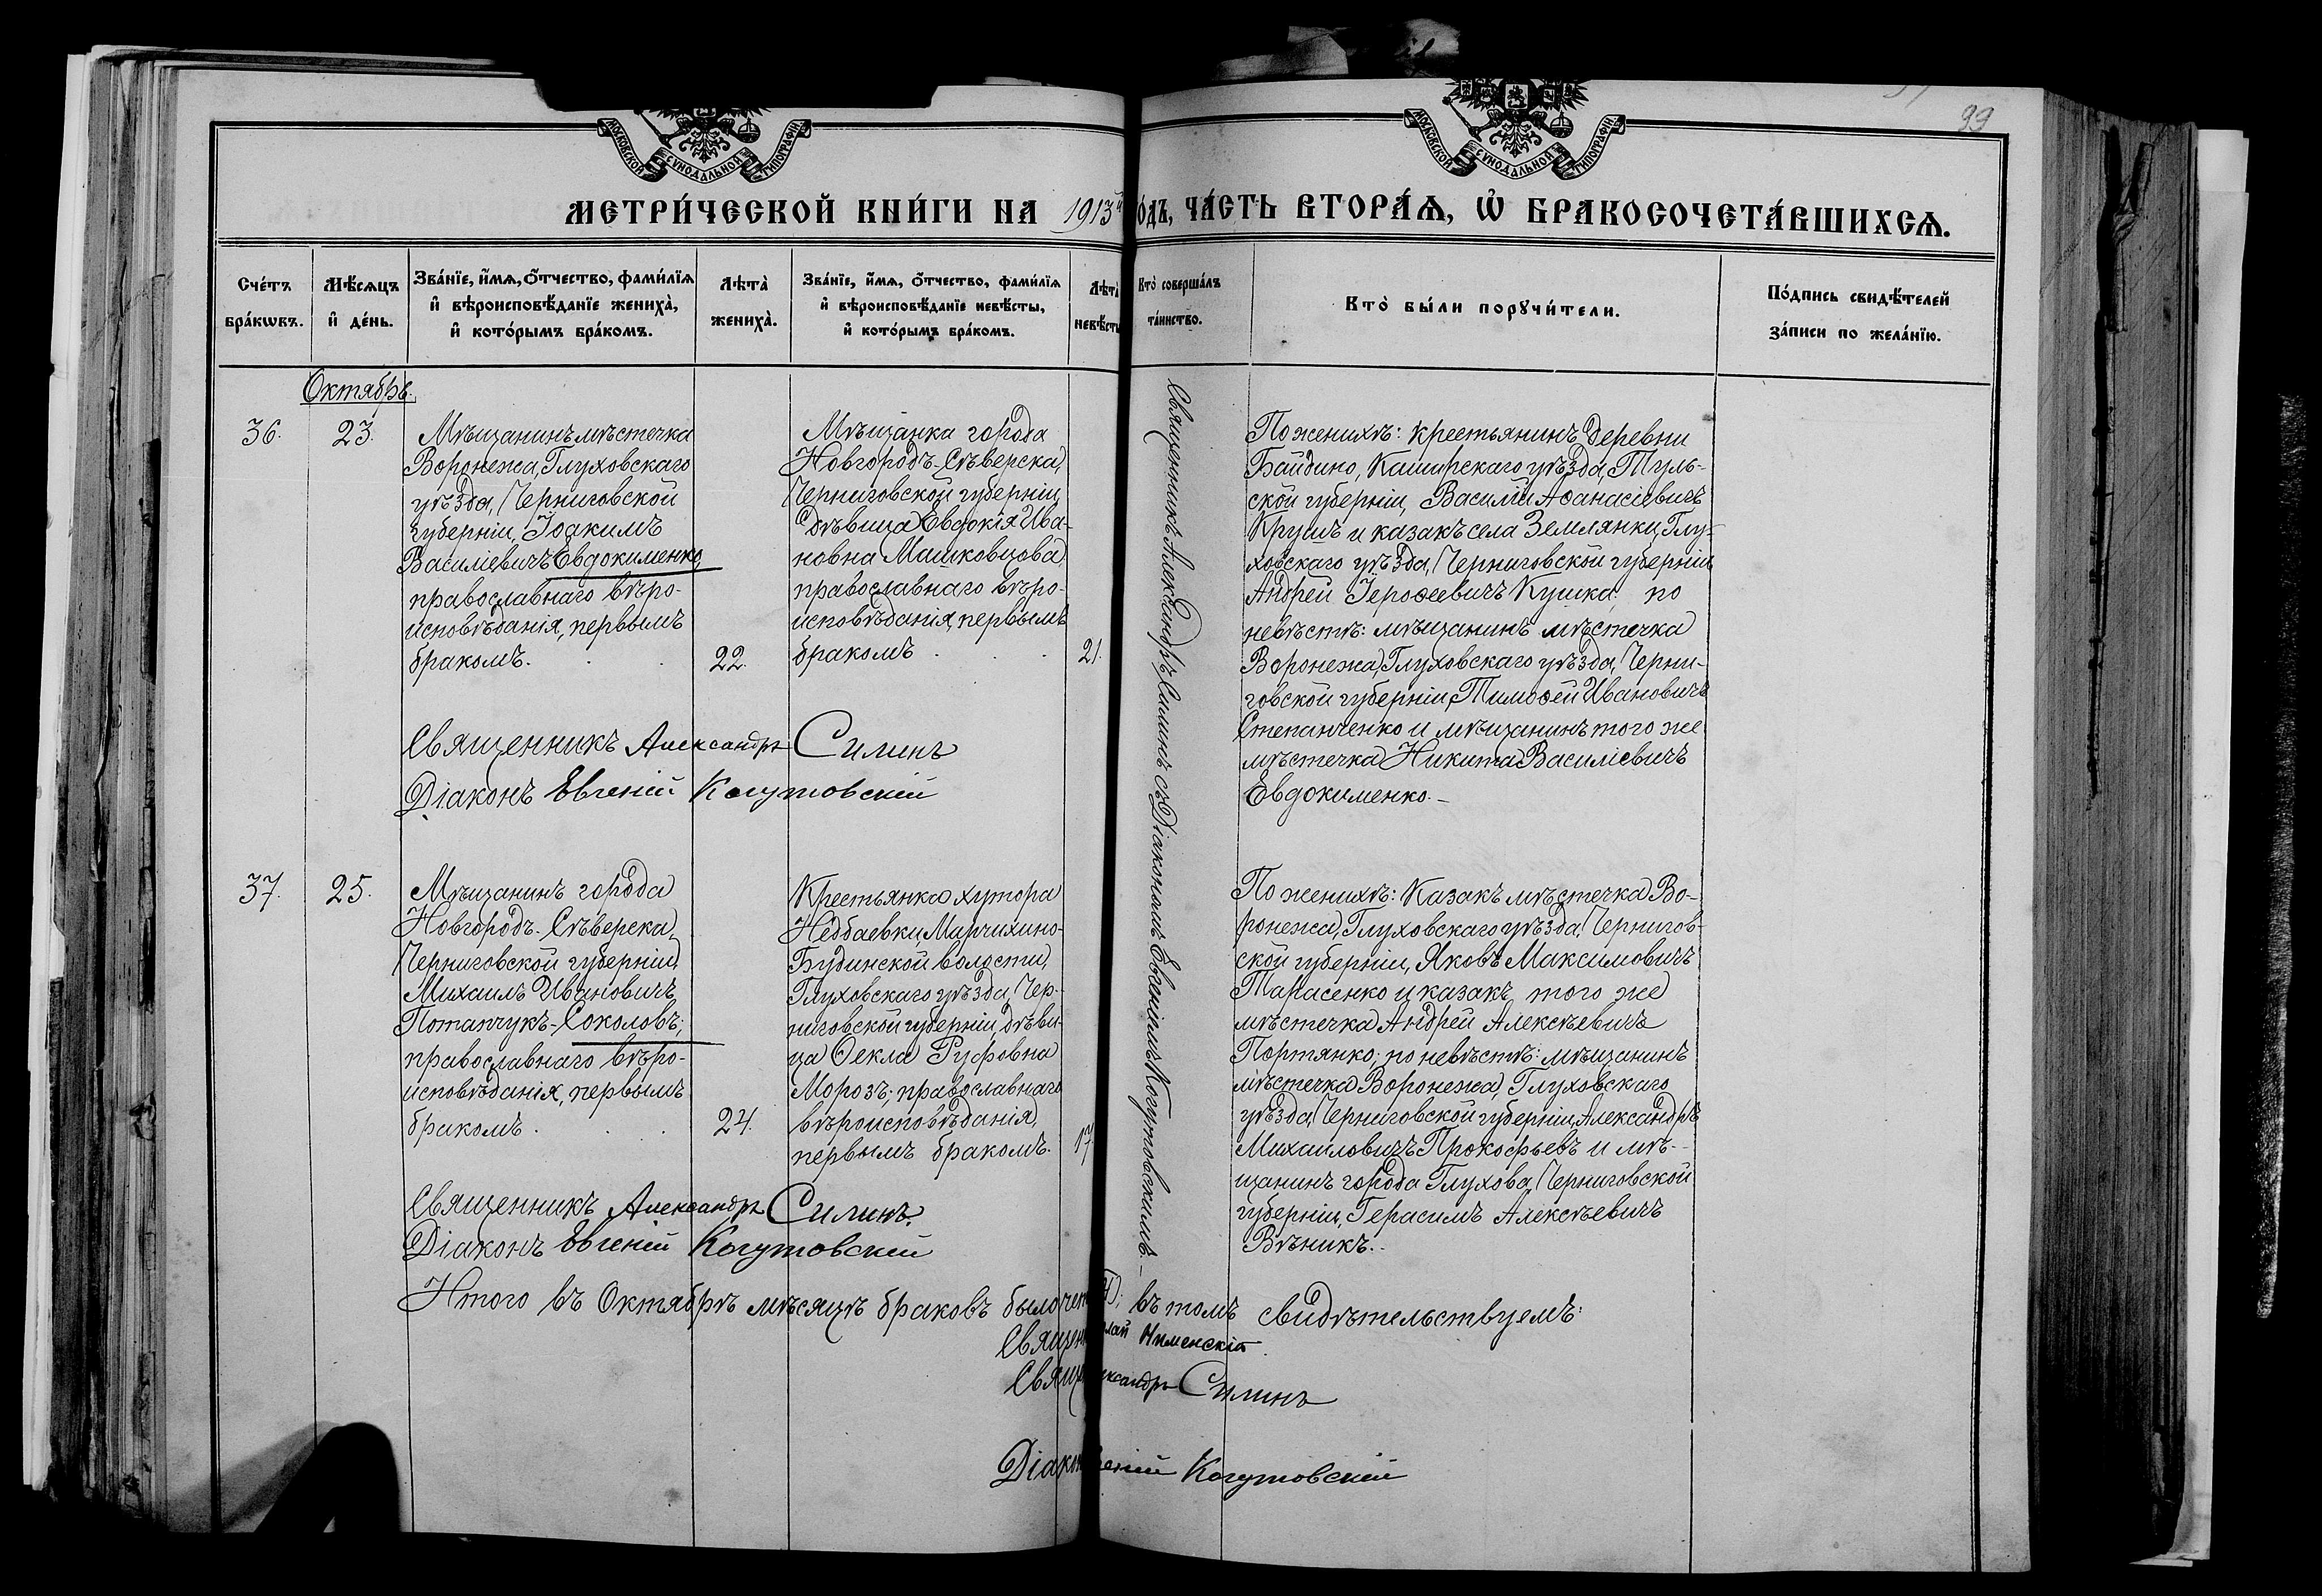 МОСКОВСКОЙ СѴНОДАЛЬНОЙ ТИПОГРАФІИ.
МОСКОВСКОЙ СѴНОДАЛЬНОЙ ТИПОГРАФІИ.
99
МЕТРИ́ЧЕСКОЙ КНИ́ГИ НА 1913й
О́ДЪ, ЧА́СТЬ ВТОРА́Ѧ, Ѽ БРАКОСОЧЕТА́ВШИХСѦ.
Сче́тъ
бра́кѡвъ.
Мѣ́сѧцъ
и҆ де́нь.
Зва́нїе, и҆́мѧ, о҆́тчество, фами́лїѧ
и҆ вѣроисповѣ́данїе жениха̀,
и҆ кото́рымъ бра́комъ.
Лѣта̀
жениха̀.
Зва́нїе, и҆́мѧ, о҆́тчество, фами́лїѧ
и҆ вѣроисповѣ́данїе невѣ́сты,
и҆ кото́рымъ бра́комъ.
Лѣта
невѣсты
Кто̀ соверша́лъ
та́инство.
Кто̀ бы́ли порꙋчи́тели.
По́дпись свидѣ́телей
за́писи по жела́нїю.
Октябрь.
36.
23.
Мѣщанинъ мѣстечка
Воронежа, Глуховскаго
уѣзда, Черниговской
губерніи, Іоакимъ
Василіевичъ Евдокименко,
православнаго вѣро-
исповѣданія, первымъ
бракомъ.
22.
Мѣщанка города
Новгородъ-Сѣверска,
Черниговской губерніи,
дѣвица Евдокія Ива-
новна Машковцова,
православнаго вѣро-
исповѣданія, первымъ
бракомъ
21.
Священникъ Александръ Силинъ съ Діакономъ Евгеніемъ Когутовскимъ.
По женихѣ: крестьянинъ деревни
Байдино, Каширскаго уѣзда, Туль-
ской губерніи, Василій Аѳанасіевичъ
Крушъ и казакъ села Землянки, Глу-
ховскаго уѣзда, Черниговской губерніи
Андрей Іероѳеевичъ Кушка, по
невѣстѣ: мѣщанинъ мѣстечка
Воронежа, Глуховскаго уѣзда, Черни-
говской губерніи, Тимоѳей Ивановичъ
Степанченко и мѣщанинъ того же
мѣстечка Никита Василіевичъ
Евдокименко.
Священникъ Александръ Силинъ
Діаконъ Евгеній Когутовскій
37.
25.
Мѣщанинъ города
Новгородъ-Сѣверска,
Черниговской губерніи,
Михаилъ Ивановичъ
Потапчукъ-Соколовъ;
православнаго вѣро-
исповѣданія, первымъ
бракомъ.
24.
Крестьянка хутора
Недбаевки, Марчихино-
Будинской волости,
Глуховскаго уѣзда, Чер-
ниговской губерніи, дѣви-
ца Ѳекла Руфовна
Морозъ; православнаго
вѣроисповѣданія,
первымъ бракомъ.
17.
По женихѣ: казакъ мѣстечка Во-
ронежа, Глуховскаго уѣзда, Чернигов-
ской губерніи, Яковъ Максимовичъ
Тарасенко и казакъ того же
мѣстечка Андрей Алексѣевичъ
Портянко; по невѣстѣ: мѣщанинъ
мѣстечка Воронежа, Глуховскаго
уѣзда, Черниговской губерніи, Александръ
Михаиловичъ Прокофьевъ и мѣ-
щанинъ города Глухова, Черниговской
губерніи, Герасимъ Алексѣевичъ
Вѣникъ.
Священникъ Александръ Силинъ.
Діаконъ Евгеній Когутовскій
Итого въ Октябрѣ мѣсяцѣ браковъ было въ томъ свидѣтельствуемъ:
Силинъ
Когутовскій